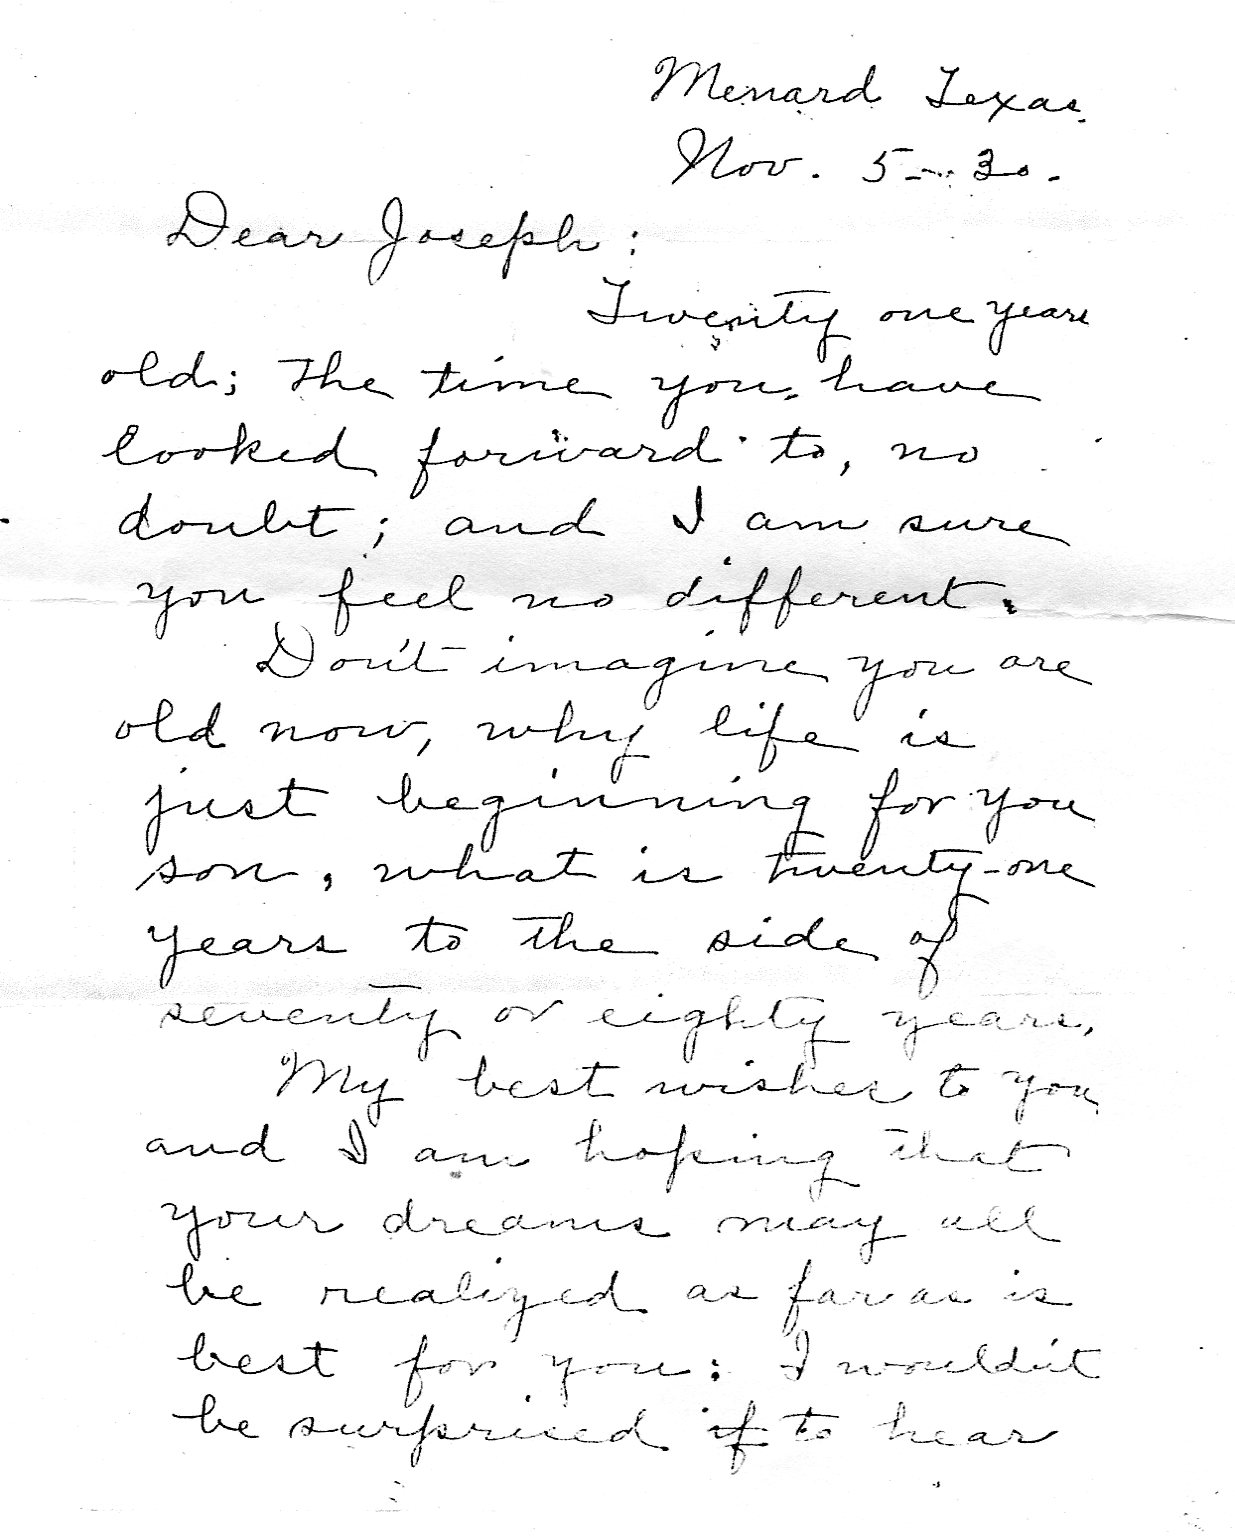 Menard Texas.
Nov. 5-30.
Dear Joseph:
Twenty one years
old; The time you have
looked forward to, no
doubt; and I am sure
you feel no different.
Don't imagine you are
old now, why life is
just beginning for you
son, what is twenty-one
years to the side of
seventy or eighty years.
My best wishes to you,
and I am hoping that
your dreams may all
be realized as far as is
best for you: I wouldn't
be surprised if to hear